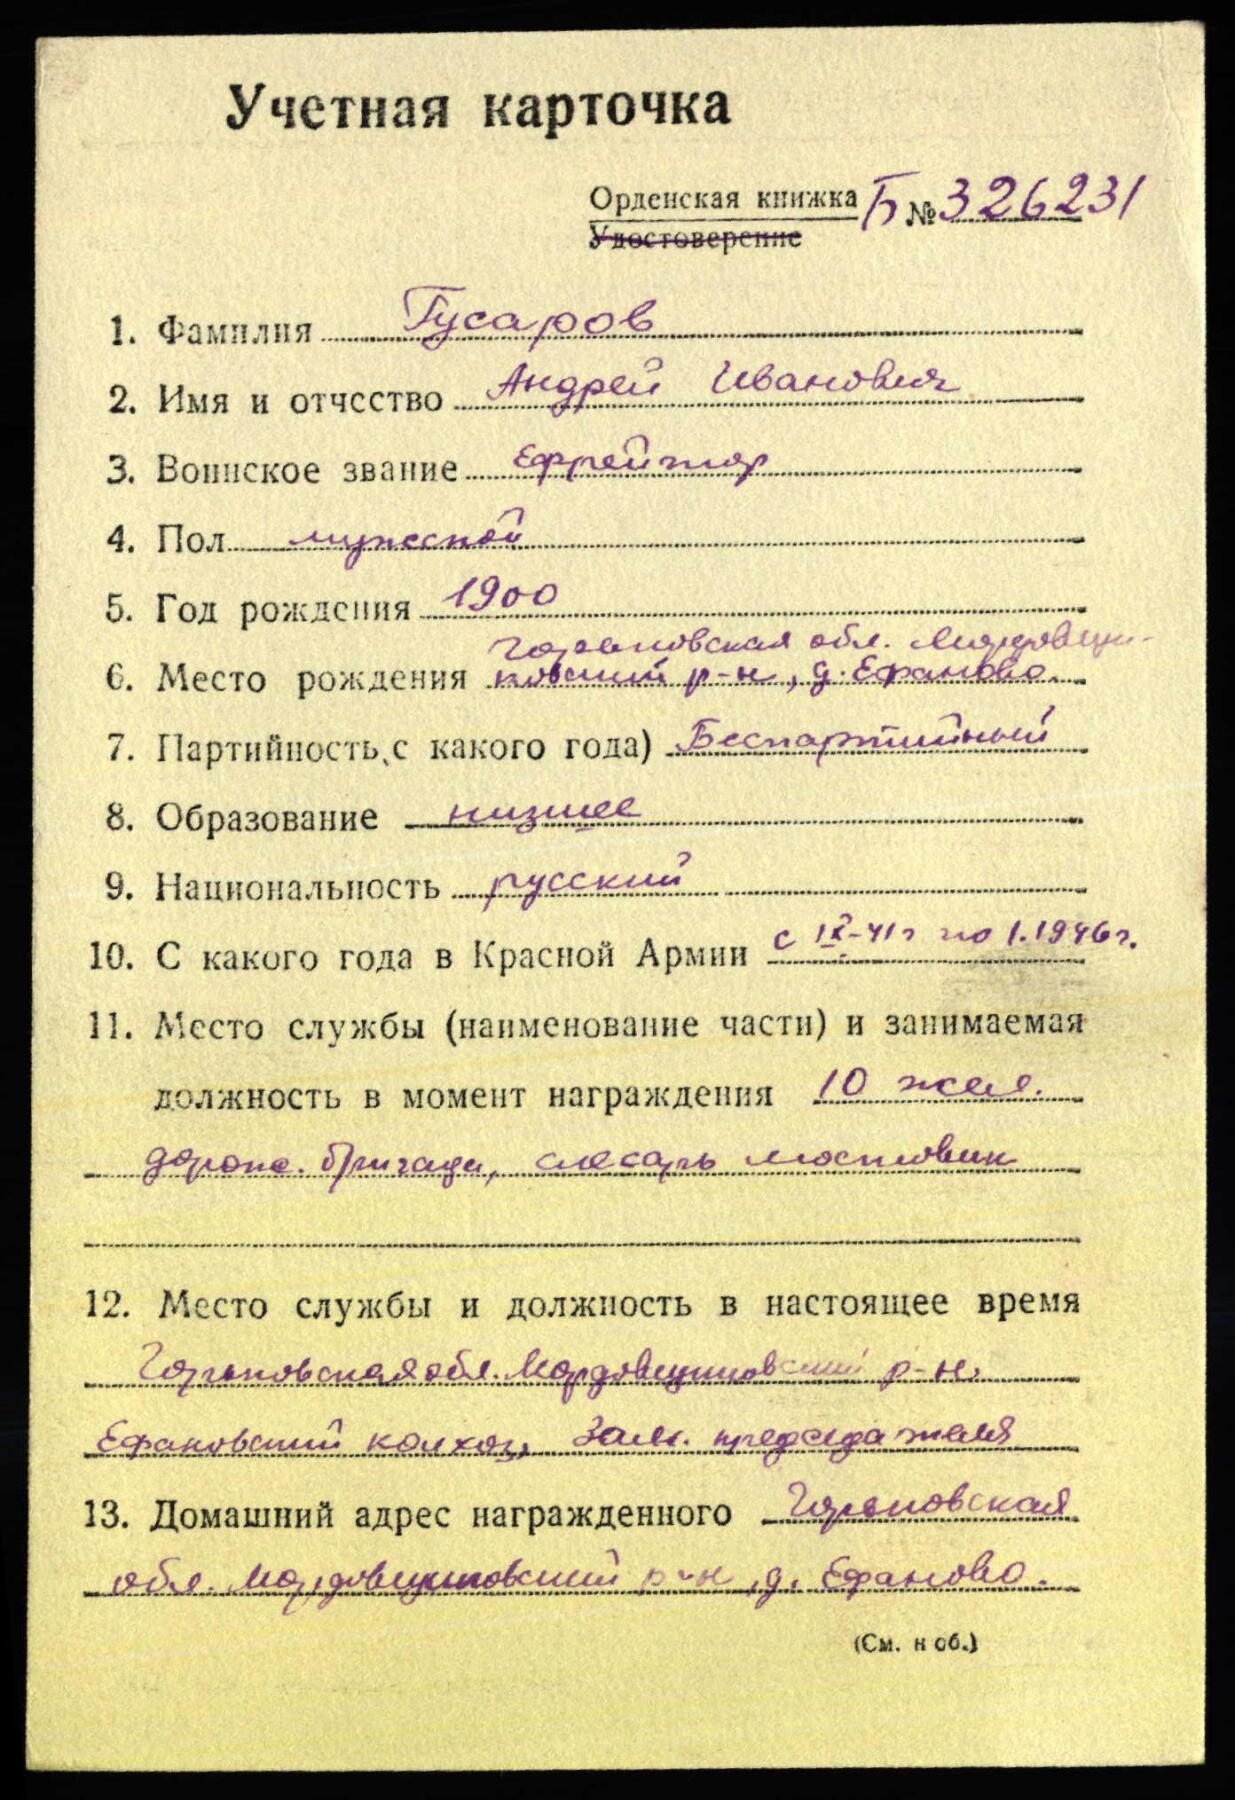 Учетная карточка
Орденская книжка Б № 326231
Удостоверение
1. Фамилия Гусаров
2. Имя и отчество Андрей Иванович
3. Воинское звание Ефрейтор
4. Пол мужской
5. Год рождения 1900
Горьковская обл. Мордовщи-
6. Место рождения ковский р-н, д. Ефаново.
7. Партийность с какого года) Беспартийный
8. Образование низшее
9. Национальность русский
10. С какого года в Красной Армии с IX-41г по 1.1946г.
11. Место службы (наименование части) и занимаемая
должность в момент награждения 10 жел.
дорожн. бригады, слесарь мостовик
12. Место службы и должность в настоящее время
Горьковская обл. Мордовщиковский р-н.
Ефановский колхоз, Зам. председателя
13. Домашний адрес награжденного Горьковская
обл. Мордовщиковский р-н, д. Ефаново.
(См. н об.)